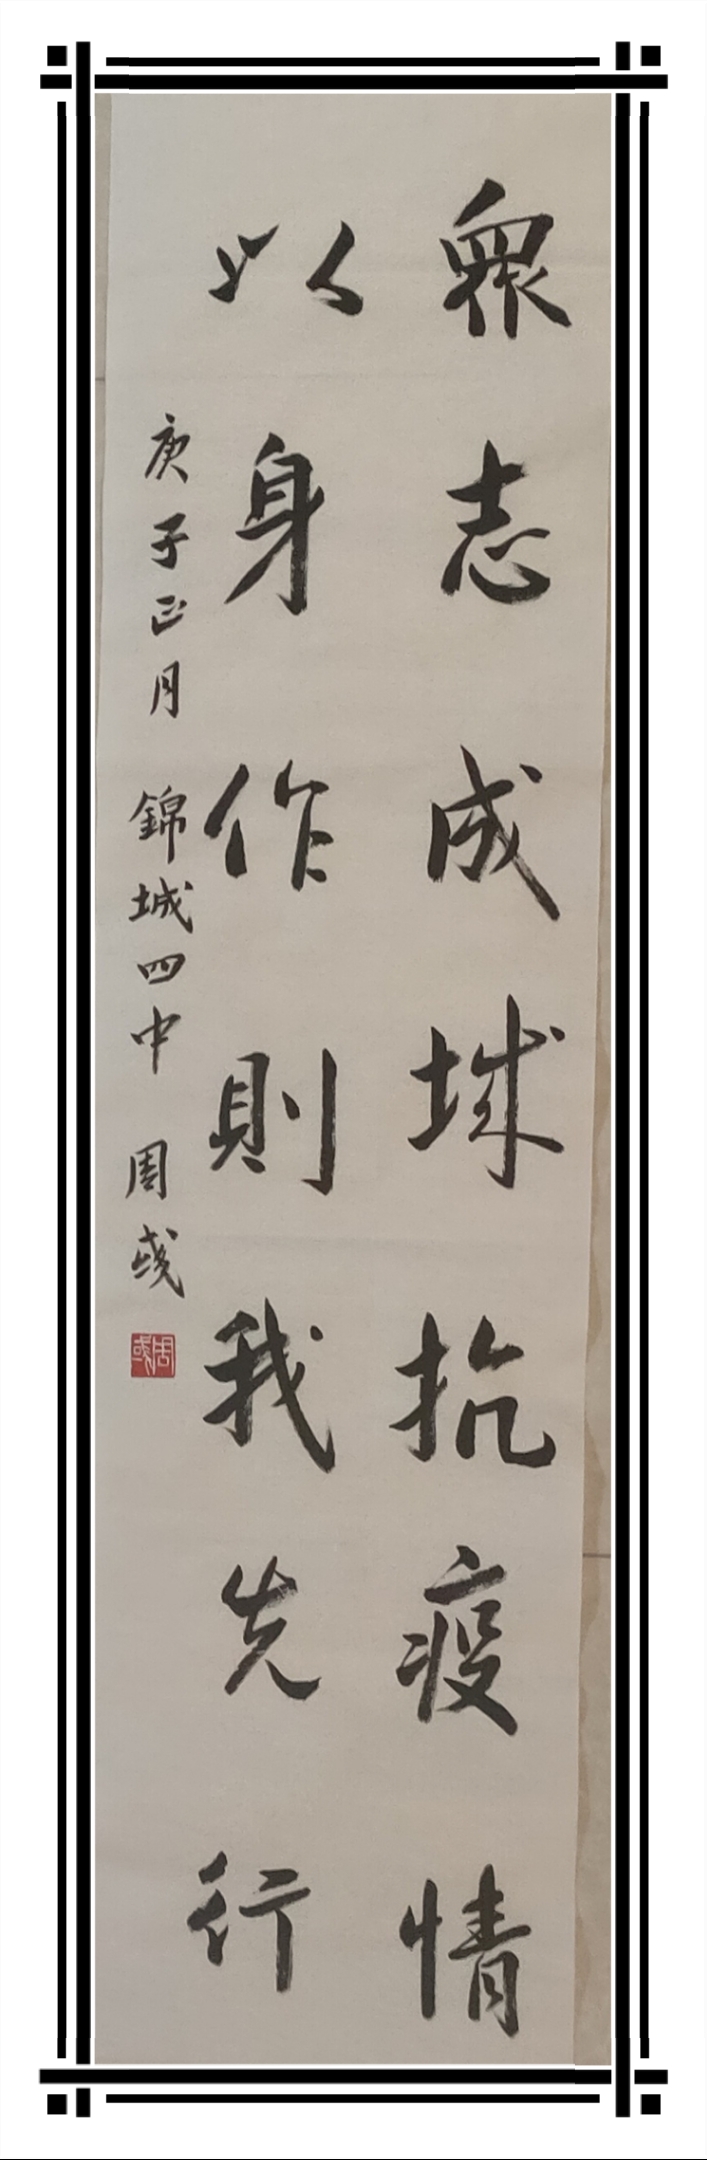 眾志成城抗疫情
以身作則我先行
庚子正月 錦城四中 周彧
周彧